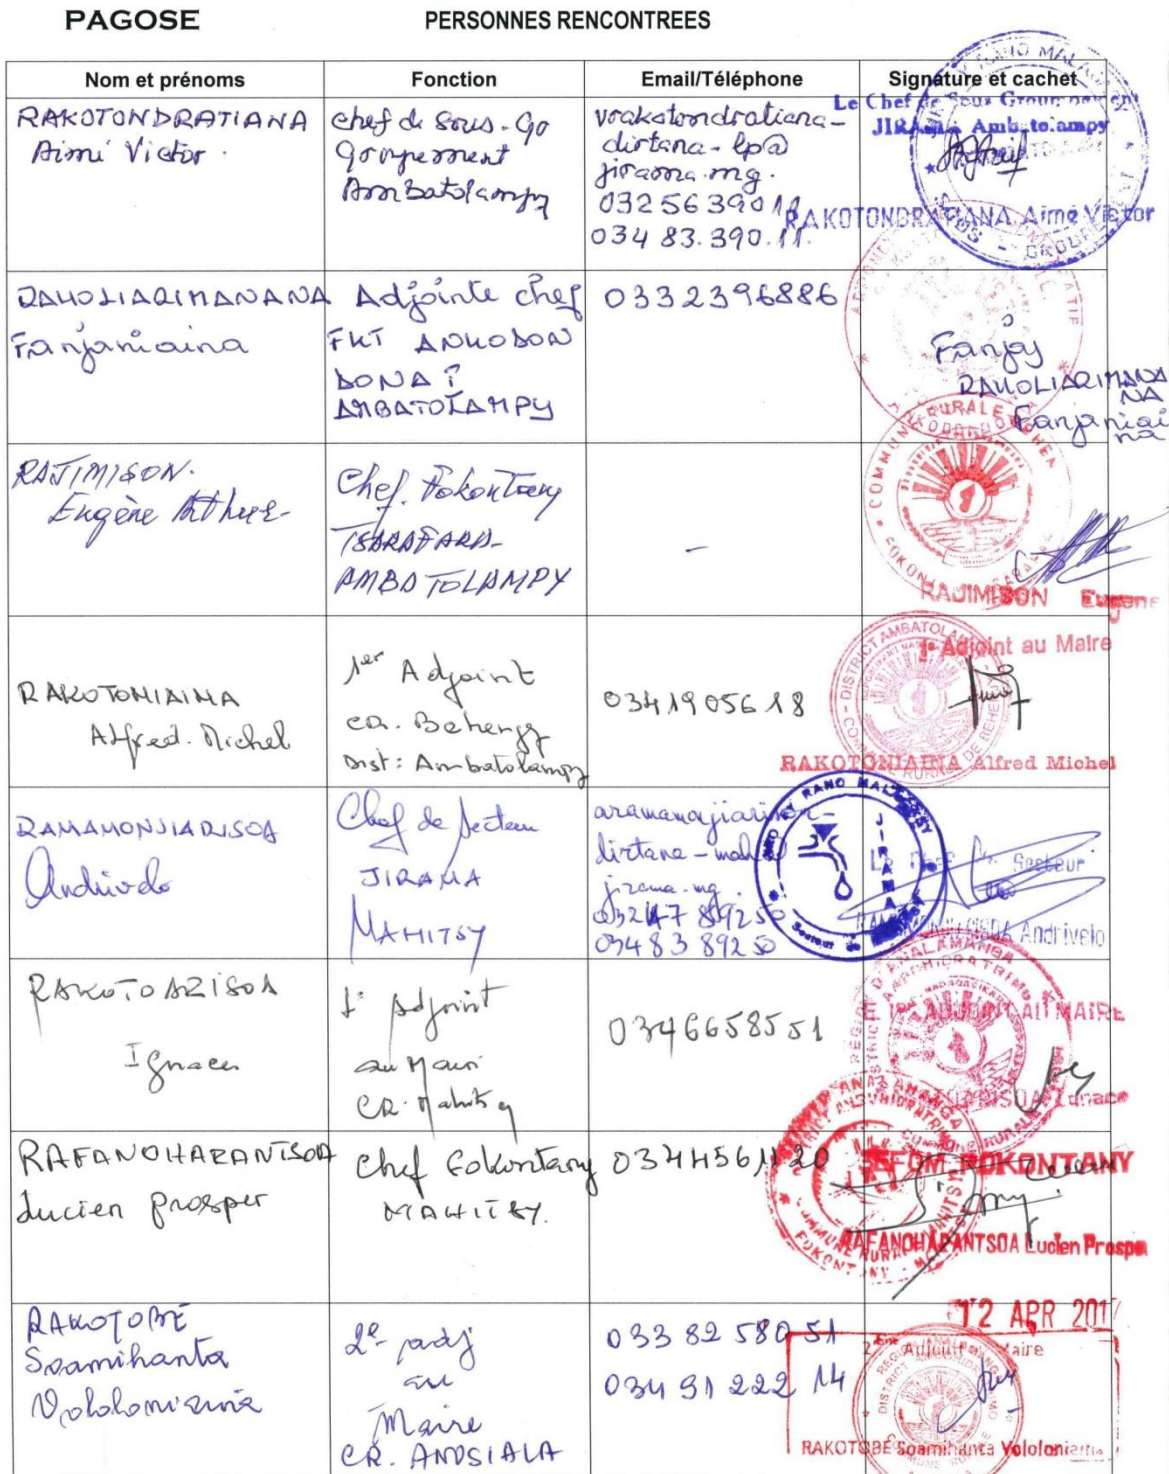 PAGOSE
PERSONNES RENCONTREES
Nom et prénoms
Fonction
Email/Téléphone
Signature et cachet
RAKOTONDRATIANA
Aimé Victor.
chef de sous-Go
Groupement
Ambatolampy
vrakotondratiana-
dirtana-lp@
jirama.mg.
0325639011
034 83.390.11.
Le Chef de Sous Groupement
JIRAMA Ambatolampy
RAKOTONDRATIANA Aimé Victor
RAKOLIARIMANANA
Fanjaniaina
Adjointe chef
FKT ANKODON
DONA I
AMBATOLAMPY
0332396886
Fanjay
RAKOLIARIMANA
NA
Fanjaniai
na
RAJIMISON.
Eugène Arthur
Chef Fokontany
TSARAFARA-
AMBATOLAMPY
-
COMMUNE RURALE
RAJIMISON Eugene
RAKOTONIAINA
Alfred. Michel
1er Adjoint
CR. Behenjy
Dist: Ambatolampy
0341905618
1e Adjoint au Maire
RAKOTONIAINA Alfred Michel
RAMAMONJIARISOA
Andrivelo
Chef de Secteur
JIRAMA
MAHITSY
dirtana-
jirama.mg.
034 83 892 50
JIRAMA
Le Chef de Secteur
Andrivelo
RAKOTOARISOA
Ignace
1e Adjoint
au Maire
CR. Mahitsy
0346658551
LE 1er ADJOINT AU MAIRE
Ignace
RAFANOHARANTSOA
Lucien Prosper
Chef Fokontany
MAHITSY.
SEFOM-POKONTANY
RAFANOHARANTSOA Lucien Prospe
RAKOTOBE
Soamihanta
Vololoniaina
2e adj
au
Maire
CR. ANOSIALA
033 82 580 51
034 91 222 14
12 APR 201
2ème Adjoint au Maire
RAKOTOBE Soamihanta Vololoniaina